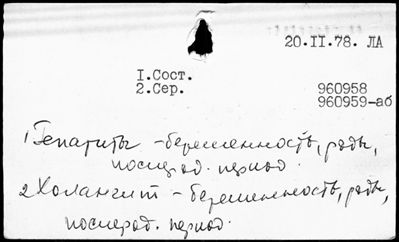 20.II.78. ЛА
I.Сост.
2.Сер. 960958
960959-аб
1 Гепатиты - беременность, роды,
послерод. период.
2 Холангит - беременность, роды,
послерод. период.